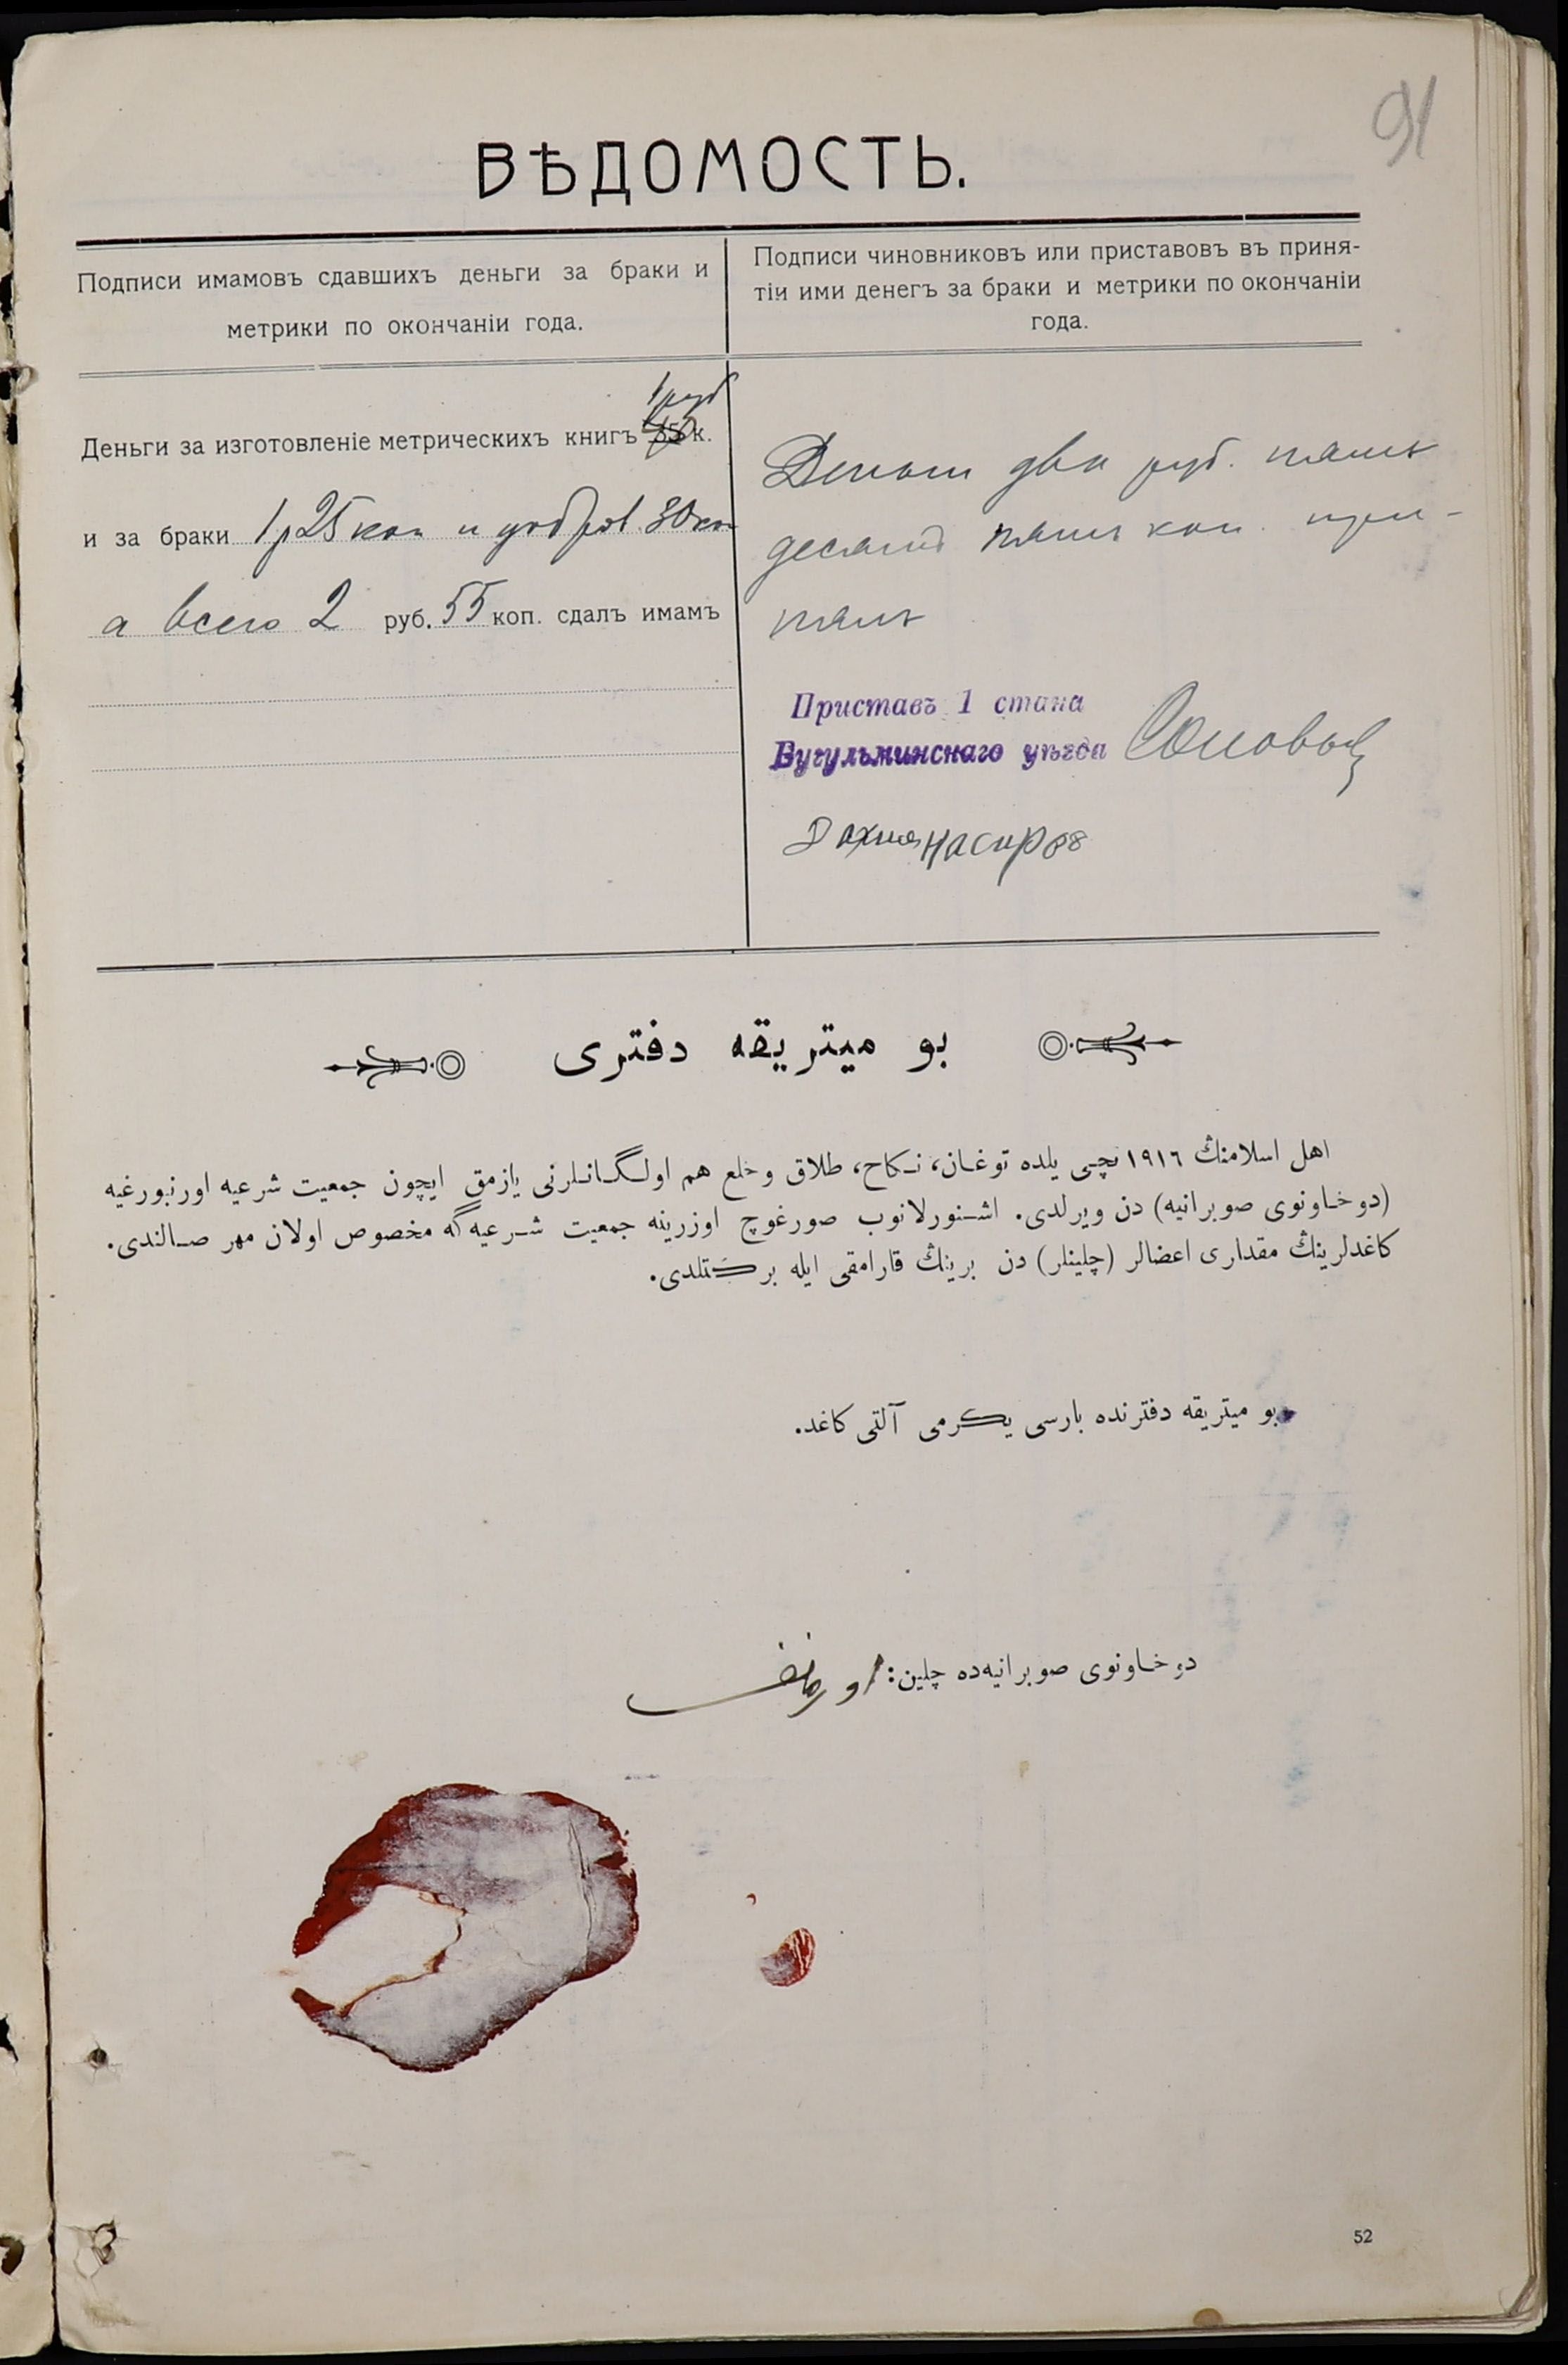 91
ВѢДОМОСТЬ.
Подписи имамовъ сдавшихъ деньги за браки и
метрики по окончаніи года.
Подписи чиновниковъ или приставовъ въ приня-
тіи ими денегъ за браки и метрики по окончаніи
года.
1 руб
Деньги за изготовленіе метрическихъ книгъ 35 к.
и за браки 1 р 25 коп и добров. 30 коп
а всего 2 руб. 55 коп. сдалъ имамъ
Деньги два руб. пять
десятъ пять коп. при-
нялъ
Приставъ 1 стана
Бугульминскаго уѣзда Соловьев
Насиров
بو ميتريقه دفترى
اهل اسلامنڭ ١٩١٦ نچى يلده توغان، نكاح، طلاق وخلع هم اولگانلرنى يازمق ايچون جمعيت شرعيه اورنبورغيه
(دوخاونوى صوبرانيه) دن ويرلدى. اشنورلانوب صورغوچ اوزرينه جمعيت شرعيه گه مخصوص اولان مهر صالندى.
كاغدلرينڭ مقدارى اعضالر (چلينلر) دن برينڭ قارامقى ايله بركتلدى.
بو ميتريقه دفترنده بارسى يكرمى آلتى كاغد.
دوخاونوى صوبرانيه‌ده چلين:
52